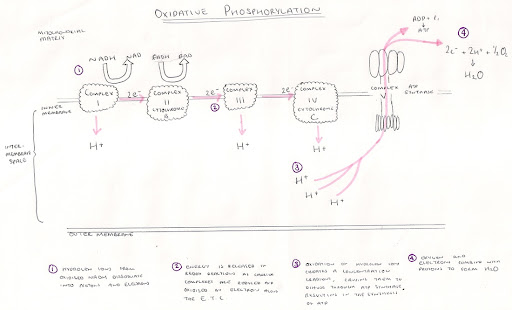 OXIDATIVE PHOSPHORYLATION
MITOCHONDRIAL
MATRIX
ADP + Pi
ATP
4
2e- + 2H+ + ½O2
H2O
1
NADH NAD
FADH FAD
COMPLEX
I
2e-
COMPLEX
II
CYTOCHROME
B
2e-
2
COMPLEX
III
2e-
COMPLEX
IV
CYTOCHROME
C
COMPLEX
V
ATP
SYNTHASE
INNER
MEMBRANE
H+
H+
H+
INTER-
MEMBRANE
SPACE
3
H+
H+
H+
OUTER MEMBRANE
1 HYDROGEN IONS FROM
OXIDISED NADH DISSOCIATE
INTO PROTONS AND ELECTRONS
2 ENERGY IS RELEASED IN
REDOX REACTIONS AS CARRIER
COMPLEXES ARE REDUCED AND
OXIDISED BY ELECTRONS ALONG
THE E.T.C
3 OXIDATION OF HYDROGEN IONS
CREATES A CONCENTRATION
GRADIENT, CAUSING THEM TO
DIFFUSE THROUGH ATP SYNTHASE,
RESULTING IN THE SYNTHESIS
OF ATP
4 OXYGEN AND
ELECTRONS COMBINE WITH
PROTONS TO FORM H2O